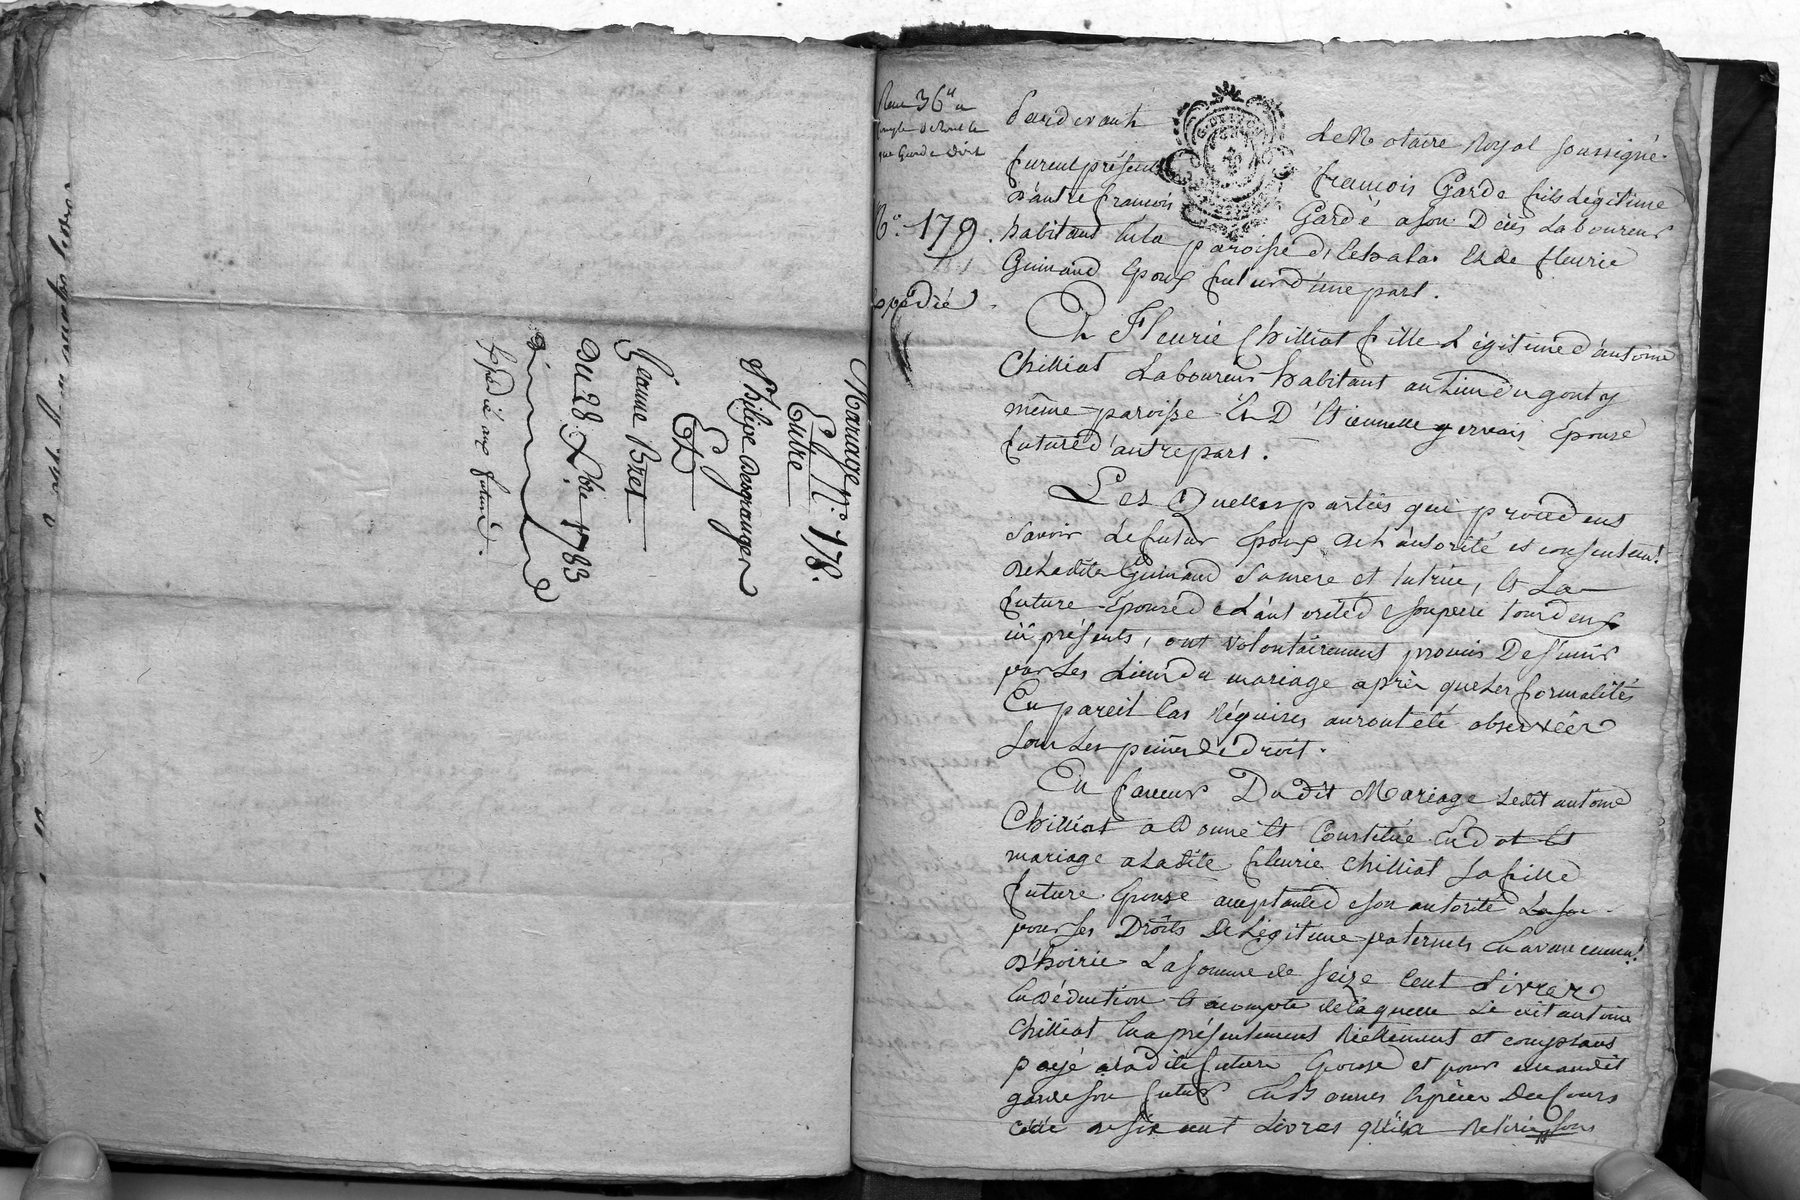 Mariage N.° 178.
Entre
Philipe desgranger
Et
Jeanne Bret
Du 28. 9bre 1783
Expedié aux futurs.
N.° 179.
expedié
Pardevant Le Notaire Royal soussigné
furent présents françois Garde fils légitime
d'autre françois Garde a son Décès Laboureur
habitant en la paroisse de Et de fleurie
Guinand Epoux futur d'une part.
Et Fleurie Chilliat fille Légitime d'antoine
Chilliat Laboureur habitant au Lieu du gonty
même paroisse Et D'Etiennette gervais Epouse
future d'autre part.
Les Quelles parties qui procedent
savoir le futur Epoux de L'autorité et consentemt.
de Ladite Guinand sa mere et tutrice, Et La
future Epouse de L'autorité de son pere tous deux
ici présents, ont volontairement promis De s'unir
par Les Liens du mariage après que Les formalités
En pareil Cas Réquises auront eté observées
sous Les peines de droit.
En faveur Dudit Mariage Ledit antoine
Chilliat a Donné Et Constitué En dot Et
mariage a Ladite fleurie Chilliat sa fille
future Epouse acceptante de son autorité
pour ses Droits de Légitime paternels En avancemt.
d'hoirie La somme de seize Cent Livres
En déduction Et acompte de laquelle Le dit antoine
Chilliat En a présentement Réellement et comptant
payé a ladite future Epouse et pour elle audit
garde son futur En Bonnes Espèces De cours
celle de six cent Livres qu'il a Retirée